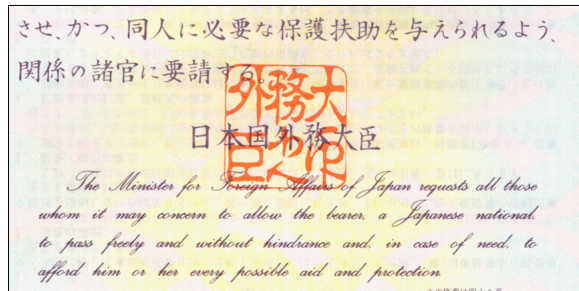 させ、かつ、同人に必要な保護扶助を与えられるよう、
関係の諸官に要請する。
日本国外務大臣
The Minister for Foreign Affairs of Japan requests all those
whom it may concern to allow the bearer, a Japanese national,
to pass freely and without hindrance and, in case of need, to
afford him or her every possible aid and protection.